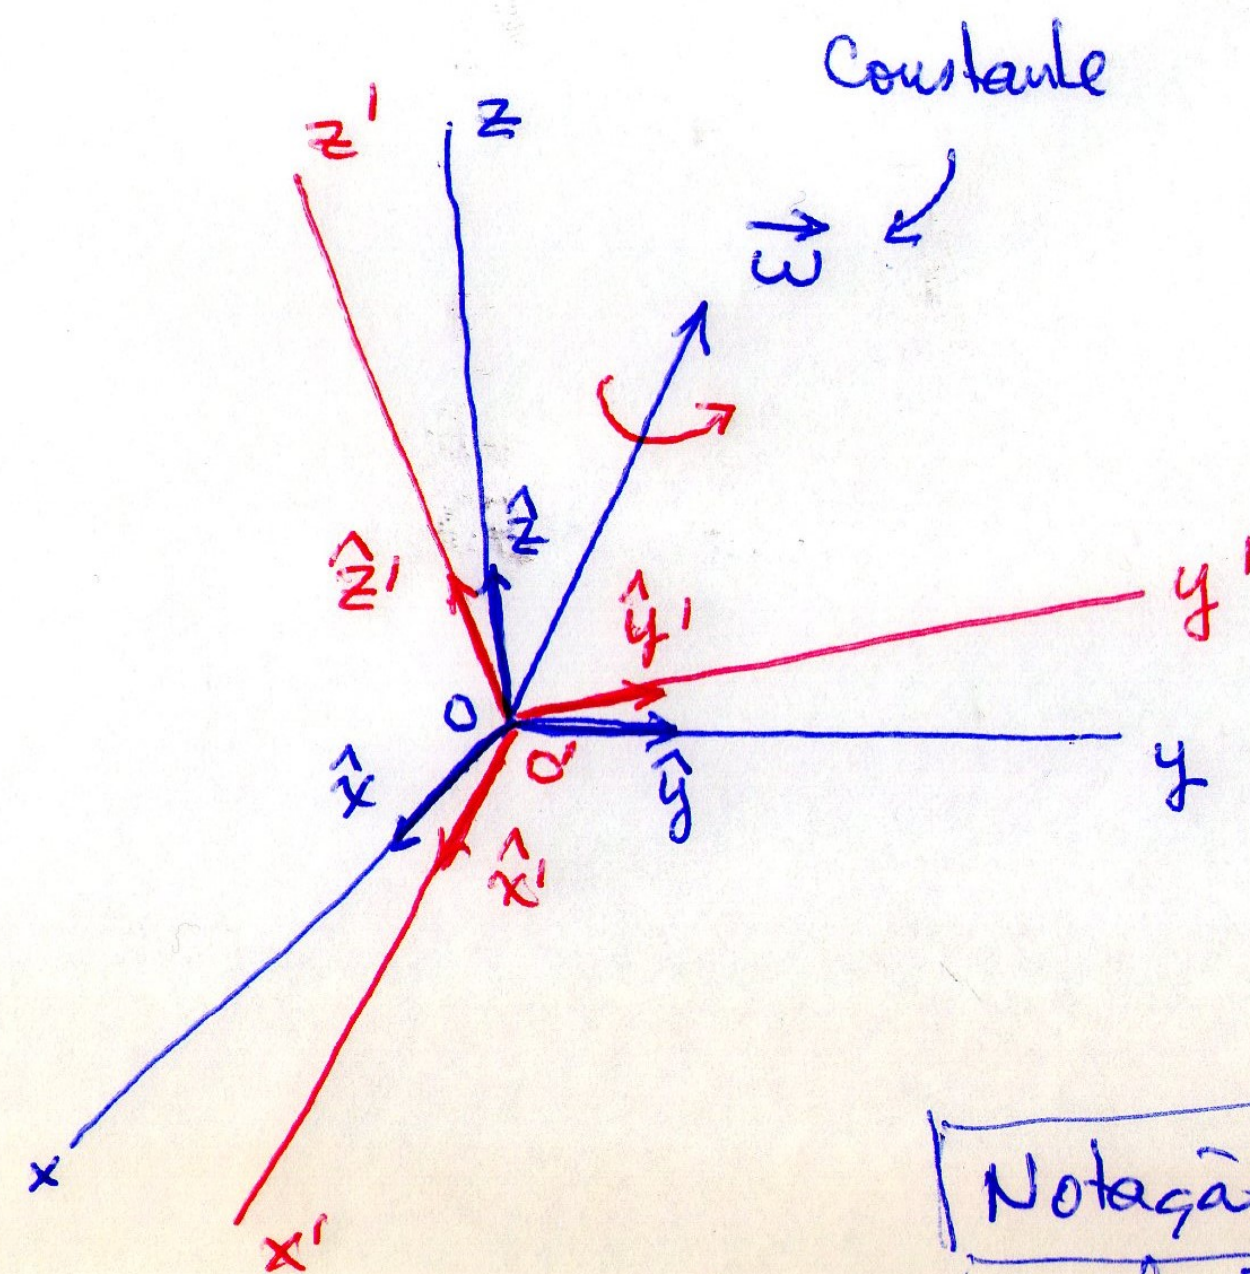 Constante
z'
z
ω⃗
ẑ
ẑ'
ŷ'
y'
O
O'
x̂
ŷ
y
x̂'
x
x'
Notaçã